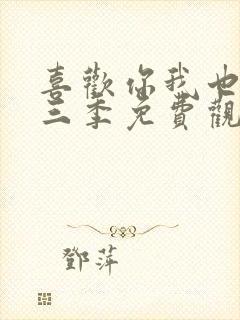 喜歡你我也
三季免費觀
鄧萍